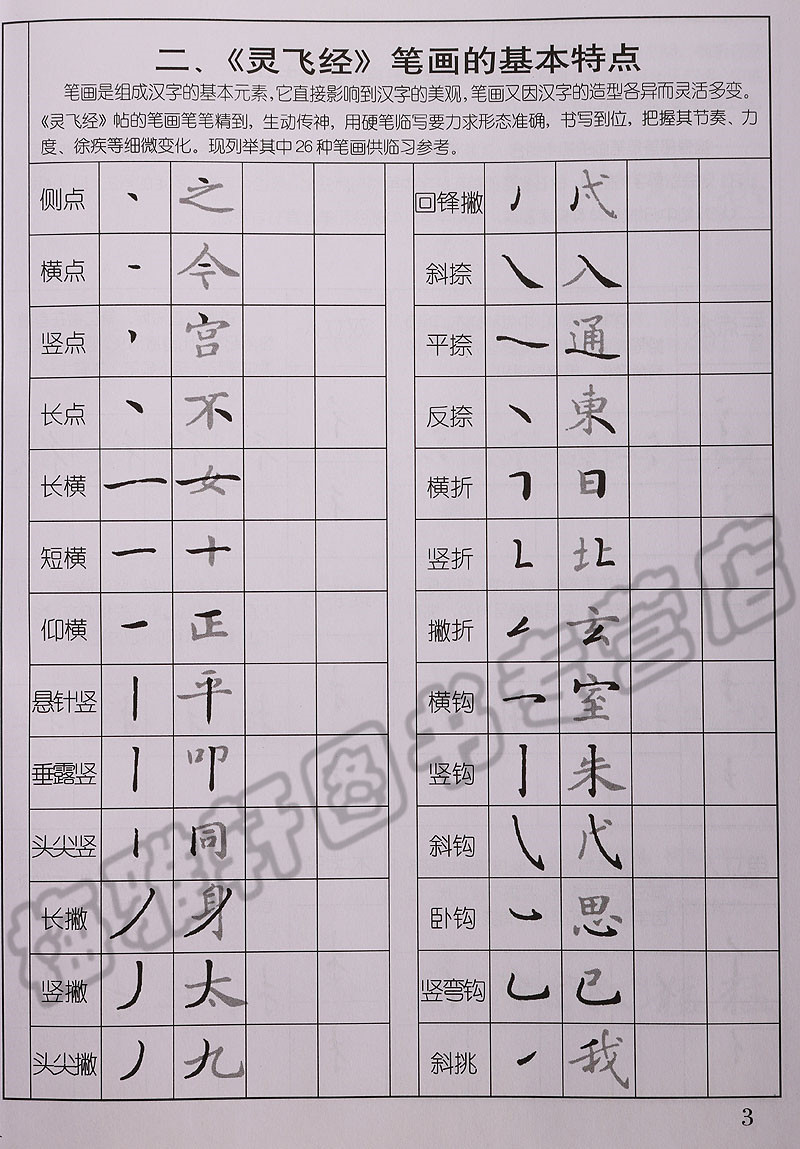 二、《灵飞经》笔画的基本特点
笔画是组成汉字的基本元素，它直接影响到汉字的美观，笔画又因汉字的造型各异而灵活多变。
《灵飞经》帖的笔画笔笔精到，生动传神，用硬笔临写要力求形态准确，书写到位，把握其节奏、力
度、徐疾等细微变化。现列举其中26种笔画供临习参考。
侧点 丶 之
横点 今
竖点 宫
长点 不
长横 一 女
短横 一 十
仰横 正
悬针竖 丨 平
垂露竖 丨 叩
头尖竖 同
长撇 丿 身
竖撇 丿 太
头尖撇 丿 九
回锋撇 代
斜捺 入
平捺 通
反捺 東
横折 日
竖折 北
撇折 玄
横钩 室
竖钩 亅 朱
斜钩 代
卧钩 思
竖弯钩 乚 已
斜挑 我
梅雅轩图书自营店
3